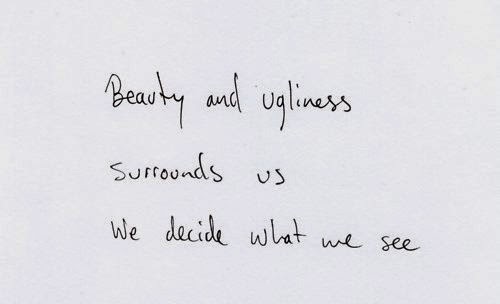 Beauty and ugliness
surrounds us
We decide what we see